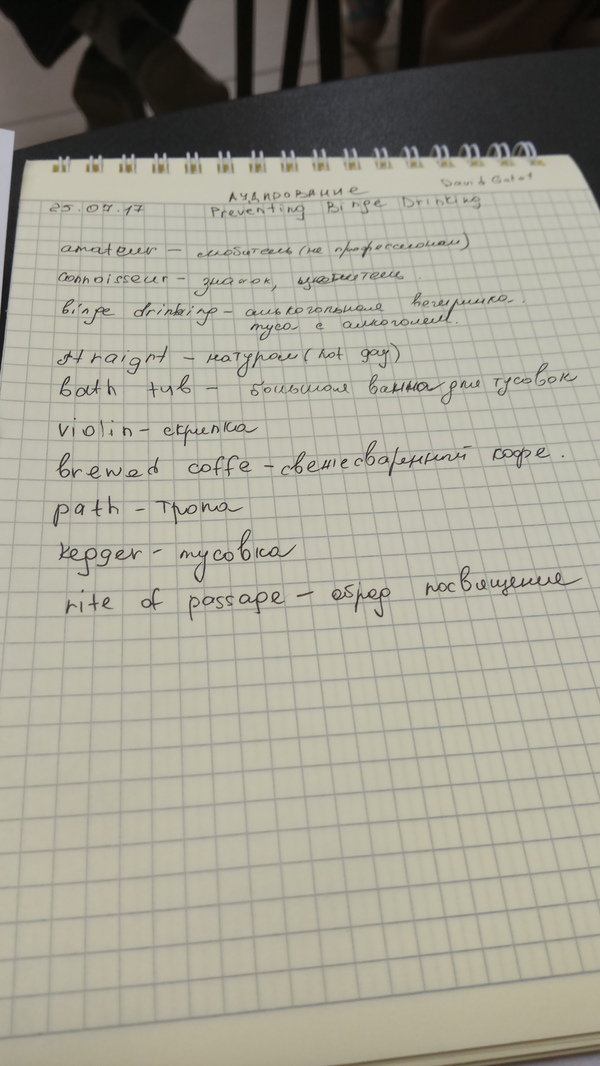 Аудирование David
25.07.17 Preventing Binge Drinking
amateur – любитель (не профессионал)
connoisseur – знаток, ценитель.
binge drinking – алкогольная вечеринка.
туса с алкоголем.
straight – натурал (not gay)
bath tub – большая ванна для тусовок
violin – скрипка
brewed coffe – свежесваренный кофе.
path – тропа
kegger – тусовка
rite of passage – обряд посвящение